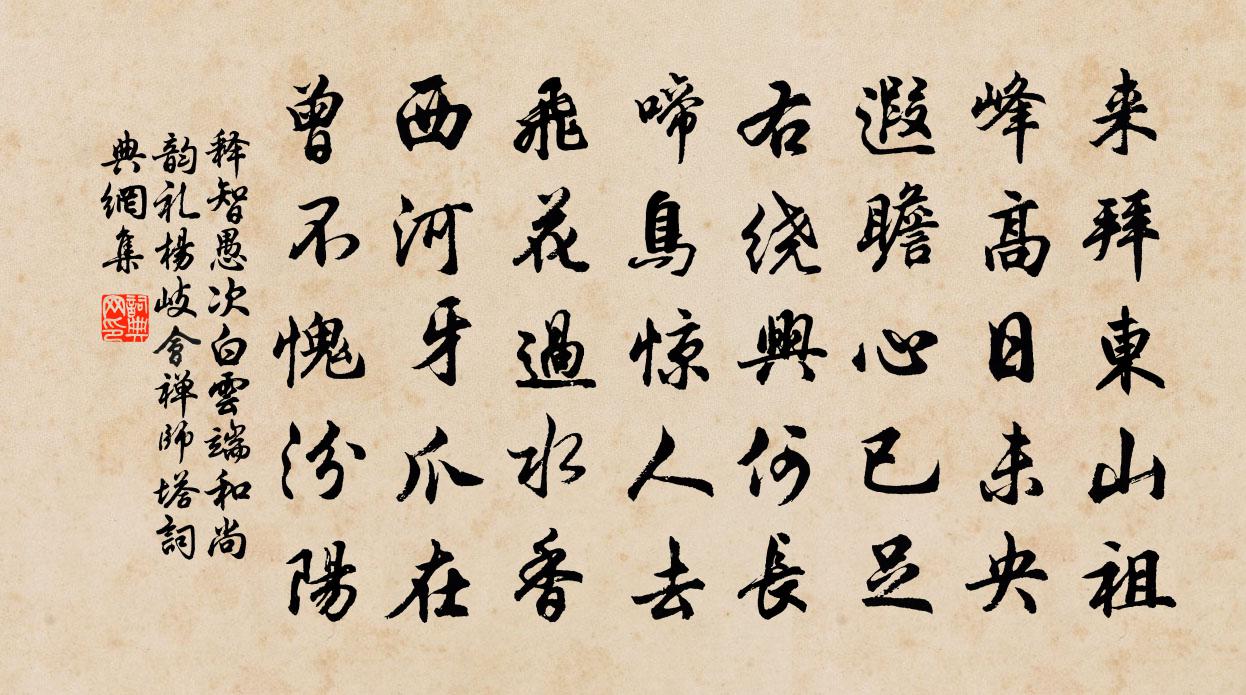 来拜東山祖
峰高日未央
遐瞻心已足
右绕興何長
啼鳥惊人去
飛花過水香
西河牙爪在
曾不愧汾陽
释智愚次白雲端和尚
韵礼楊岐會禅師塔詞
典網集
詞典网印